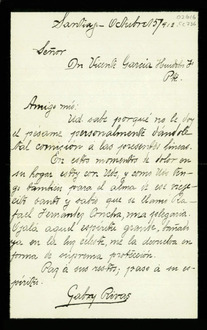 Santiago - Octubre 15/912
Señor
Dn Vicente García Huidobro F.
Pte
Amigo mio:
Ud sabe porqué no le doy
el pésame personalmente dándole
tal comision a las presentes líneas.
En estos momentos de dolor en
su hogar estoy con Uds y como Uds ten-
go tambien para el alma de ese
santo y sabio que se llamó Ra-
fael Fernández Concha, una plegaria.
Ojalá aquel espíritu grande, bañado
ya en la luz celeste, me la devuelva en
forma de suprema protección.
Paz a sus restos; paso a su es-
píritu.
Gabry Rivas